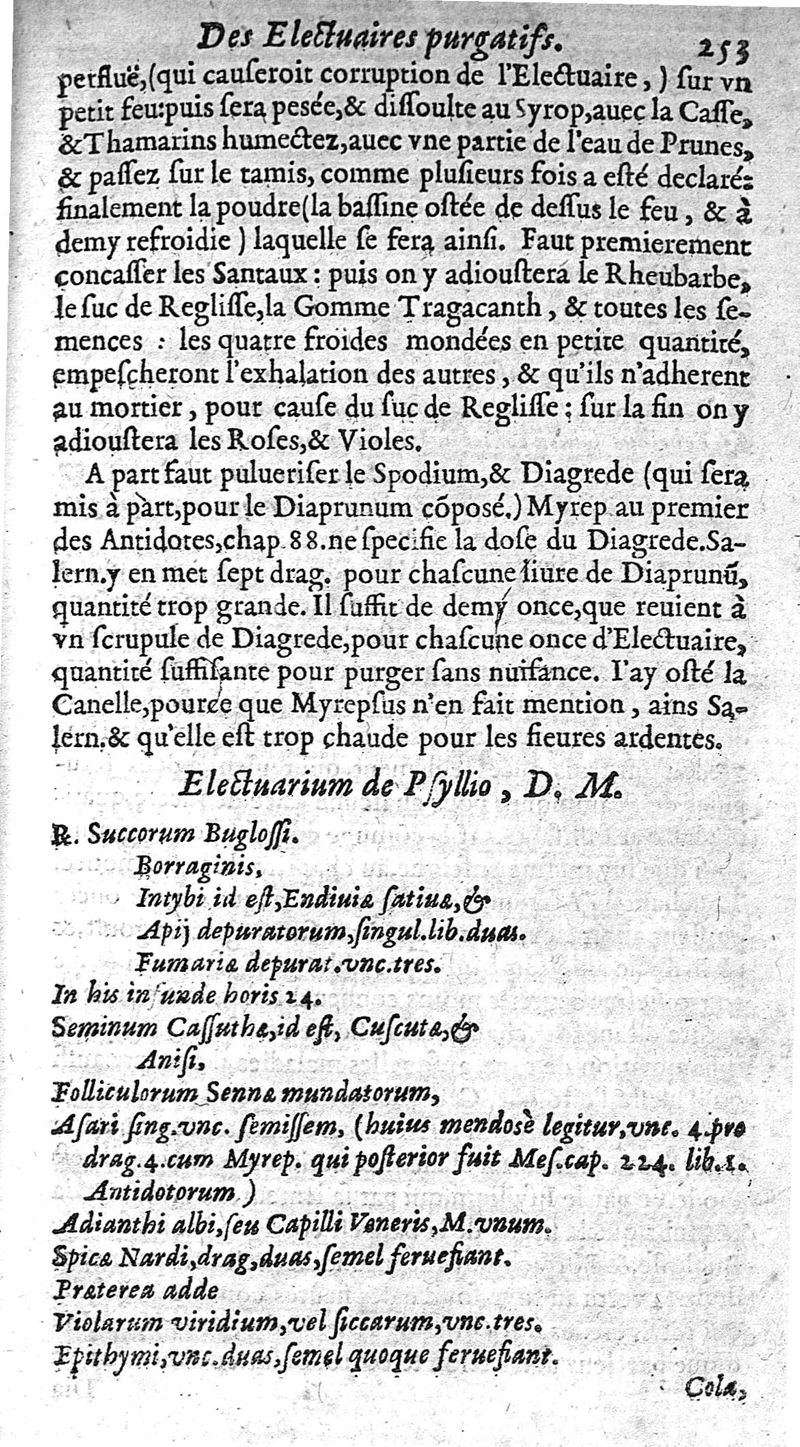 Des Electuaires purgatifs. 253
perfluë,(qui cauſeroit corruption de l'Electuaire, ) ſur vn
petit feu:puis ſera peſée,& diſſoulte au Syrop,auec la Caſſe,
&Thamarins humectez,auec vne partie de l'eau de Prunes,
& paſſez ſur le tamis, comme pluſieurs fois a eſté declaré:
finalement la poudre(la baſſine oſtée de deſſus le feu, & à
demy refroidie ) laquelle ſe fera ainſi. Faut premierement
concaſſer les Santaux : puis on y adiouſtera le Rheubarbe,
le ſuc de Regliſſe,la Gomme Tragacanth, & toutes les ſe-
mences : les quatre froides mondées en petite quantité,
empeſcheront l'exhalation des autres, & qu'ils n'adherent
au mortier, pour cauſe du ſuc de Regliſſe ; ſur la fin on y
adiouſtera les Roſes,& Violes.
A part faut pulueriſer le Spodium,& Diagrede (qui ſera
mis à part,pour le Diaprunum cõpoſé.) Myrep au premier
des Antidotes,chap.88.ne ſpecifie la doſe du Diagrede.Sa-
lern.y en met ſept drag. pour chaſcune liure de Diaprunũ,
quantité trop grande. Il ſuffit de demy once,que reuient à
vn ſcrupule de Diagrede,pour chaſcune once d'Electuaire,
quantité ſuffiſante pour purger ſans nuiſance. I'ay oſté la
Canelle,pource que Myrepſus n'en fait mention, ains Sa-
lern.& qu'elle eſt trop chaude pour les fieures ardentes.
Electuarium de Pſyllio, D. M.
℞. Succorum Bugloſſi.
Borraginis,
Intybi id eſt,Endiuiæ ſatiuæ,&
Apij depuratorum,ſingul.lib.duas.
Fumariæ depurat.vnc.tres.
In his infunde horis 24.
Seminum Caſſuthæ,id eſt, Cuſcutæ,&
Aniſi,
Folliculorum Sennæ mundatorum,
Aſari ſing.vnc. ſemiſſem, (huius mendosè legitur,vnc. 4.pro
drag.4.cum Myrep. qui poſterior fuit Meſ.cap. 224. lib.1.
Antidotorum )
Adianthi albi,ſeu Capilli Veneris,M.vnum.
Spicæ Nardi,drag,duas,ſemel feruefiant.
Præterea adde
Violarum viridium,vel ſiccarum,vnc.tres.
Epithymi,vnc.duas,ſemel quoque feruefiant.
Cola,